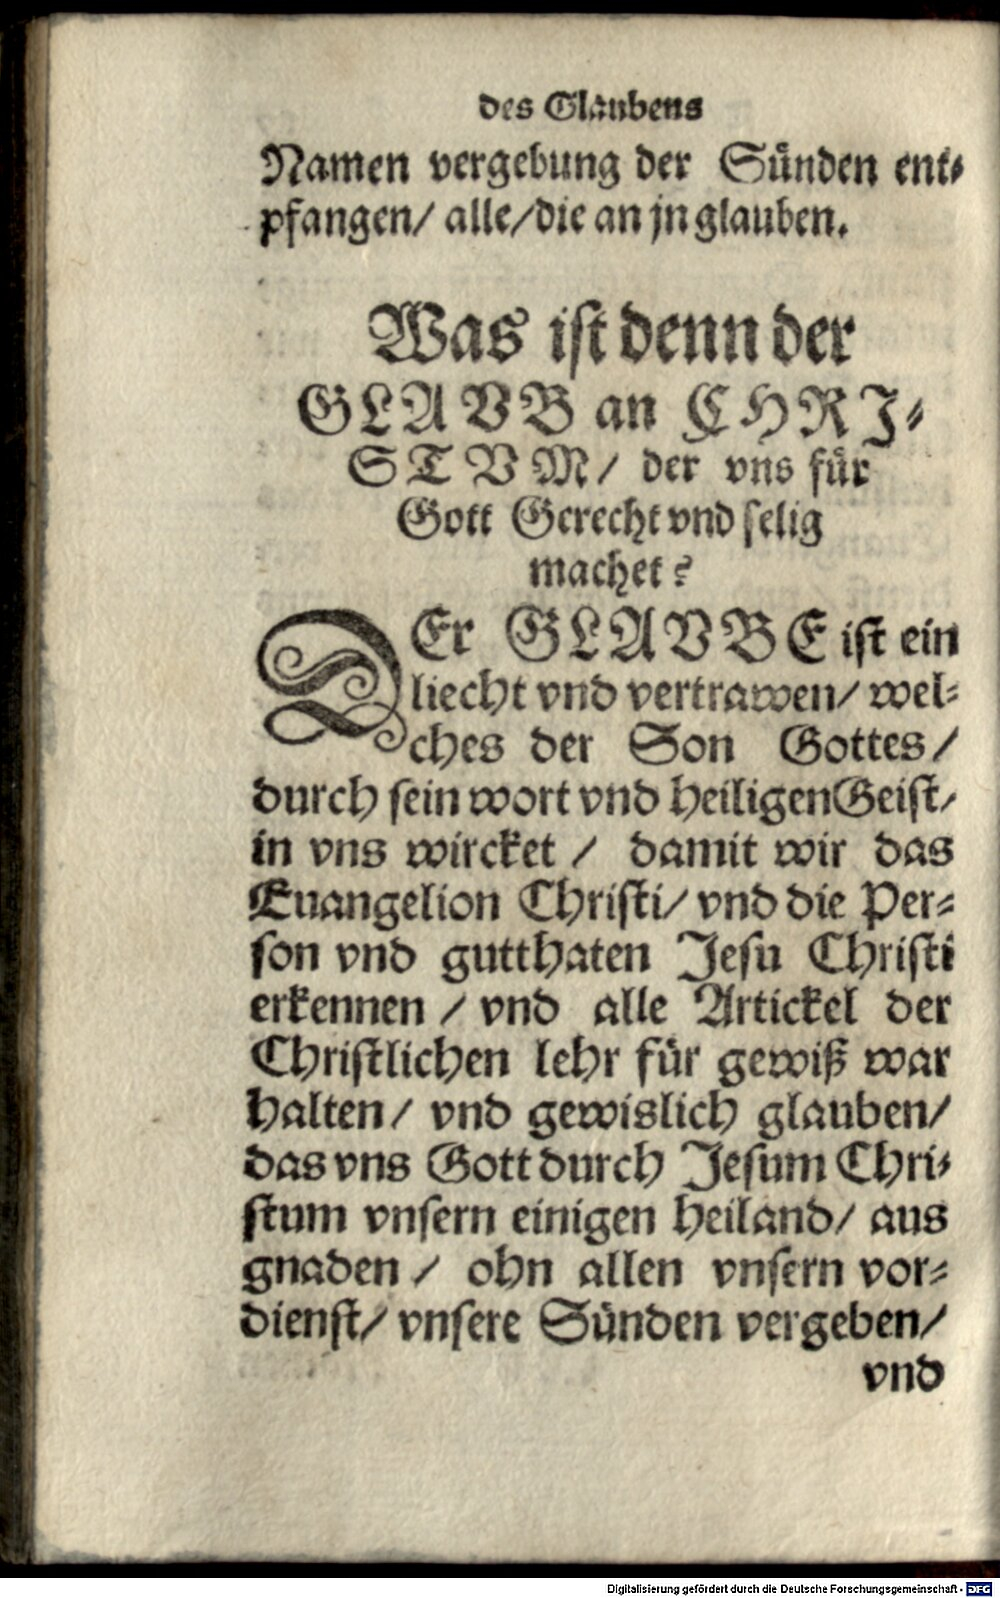 des Glaubens
Namen vergebung der Sünden ent⸗
pfangen/ alle/die an jn glauben.
Was ist denn der
GLAVB an CHRI⸗
STVM/ der vns für
Gott Gerecht vnd selig
machet?
DEr GLAVBE ist ein
liecht vnd vertrawen/ wel⸗
ches der Son Gottes/
durch sein wort vnd heiligen Geist/
in vns wircket / damit wir das
Euangelion Christi/ vnd die Per⸗
son vnd gutthaten Jesu Christi
erkennen / vnd alle Artickel der
Christlichen lehr für gewiß war
halten/ vnd gewislich glauben/
das vns Gott durch Jesum Chri⸗
stum vnsern einigen Heiland/ aus
gnaden / ohn allen vnsern vor⸗
dienst/ vnsere Sünden vergeben/
vnd
Digitalisierung gefördert durch die Deutsche Forschungsgemeinschaft - DFG